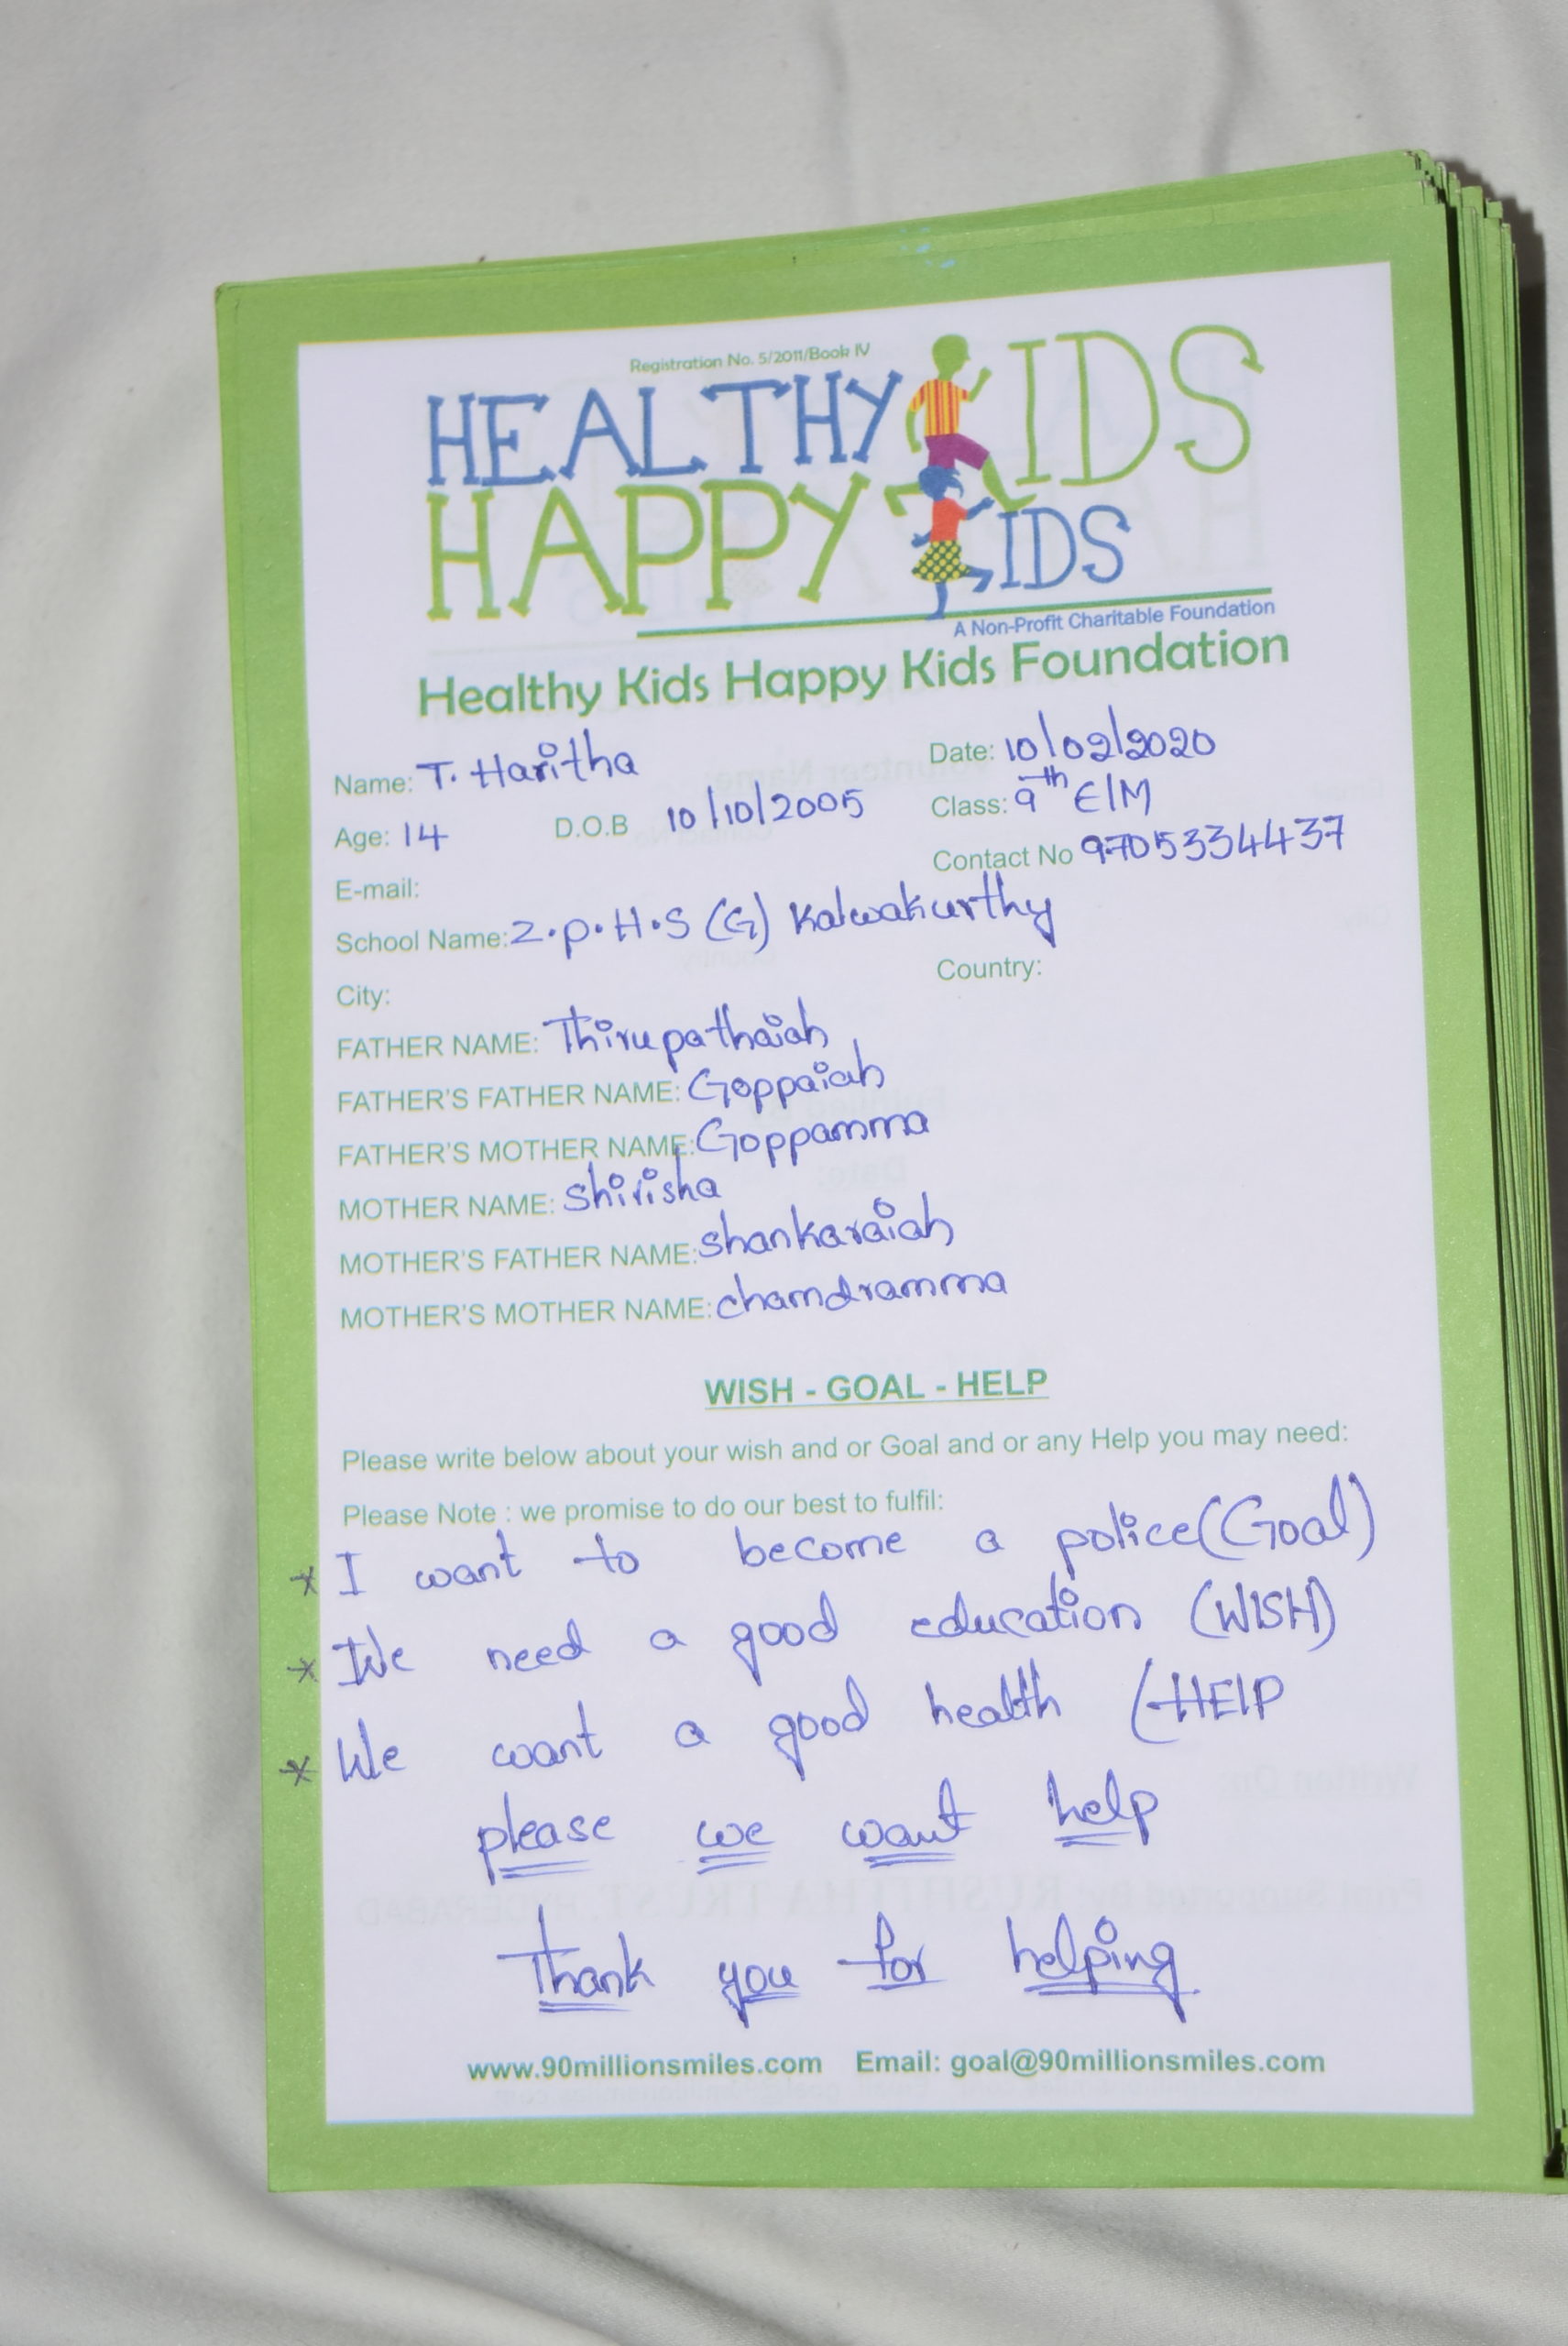 Registration No. 5/2011/Book IV
HEALTHY KIDS
HAPPY KIDS
A Non-Profit Charitable Foundation
Healthy Kids Happy Kids Foundation
Name: T. Haritha Date: 10/02/2020
Age: 14 D.O.B 10/10/2005 Class: 9th E/M
E-mail: Contact No 9705334437
School Name: Z.p.H.S (G) Kalwakurthy
City: Country:
FATHER NAME: Thirupathaiah
FATHER'S FATHER NAME: Goppaiah
FATHER'S MOTHER NAME: Goppamma
MOTHER NAME: Shirisha
MOTHER'S FATHER NAME: Shankaraiah
MOTHER'S MOTHER NAME: chamdramma
WISH - GOAL - HELP
Please write below about your wish and or Goal and or any Help you may need:
Please Note : we promise to do our best to fulfil:
* I want to become a police (Goal)
* We need a good education (WISH)
* We want a good health (HElP
please we want help
Thank you for helping
www.90millionsmiles.com Email: goal@90millionsmiles.com